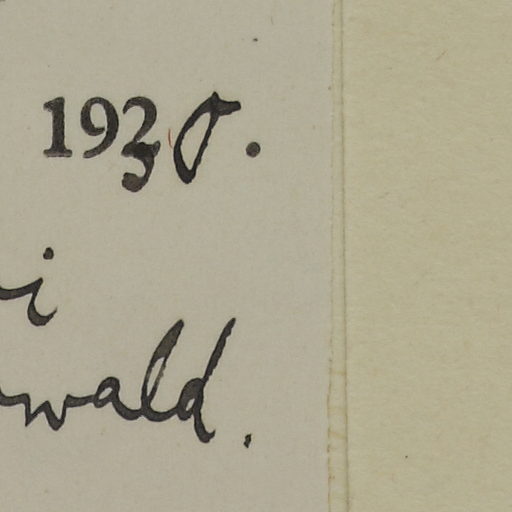 1930.
i
wald.